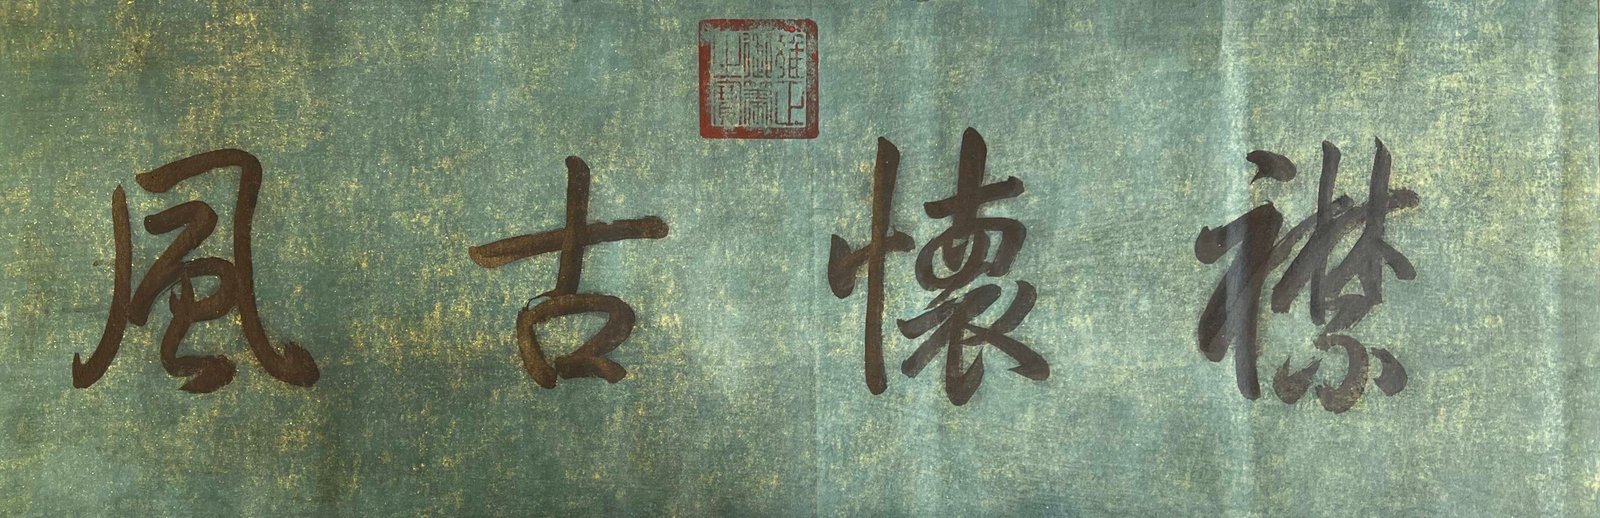 襟懷古風
雍正
御筆
之寶